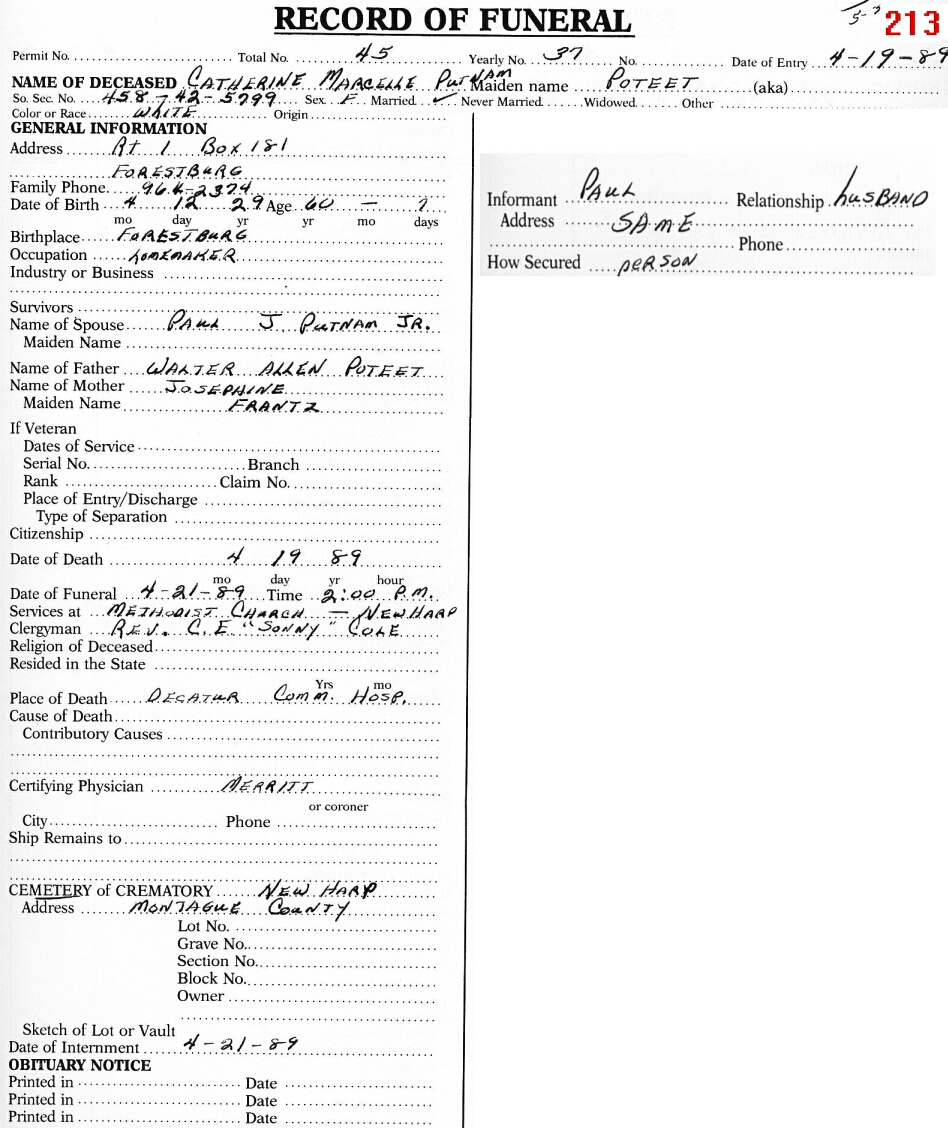 RECORD OF FUNERAL
5-3 213
Permit No. Total No. 45 Yearly No. 37 No. Date of Entry 4-19-89
NAME OF DECEASED CATHERINE MARCELLE PUTNAM Maiden name POTEET (aka)
So. Sec. No. 458-42-5799 Sex F Married ✓ Never Married Widowed Other
Color or Race WHITE Origin
GENERAL INFORMATION
Address Rt 1 Box 181
FORESTBURG
Family Phone 964-2374
Date of Birth 4 12 29 Age 60 – 7
mo day yr yr mo days
Birthplace FORESTBURG
Occupation HOMEMAKER
Industry or Business
Survivors
Name of Spouse PAUL J PUTNAM JR.
Maiden Name
Name of Father WALTER ALLEN POTEET
Name of Mother JOSEPHINE
Maiden Name FRANTZ
If Veteran
Dates of Service
Serial No. Branch
Rank Claim No.
Place of Entry/Discharge
Type of Separation
Citizenship
Date of Death 4 19 89
mo day yr hour
Date of Funeral 4-21-89 Time 2:00 P.M.
Services at METHODIST CHURCH – NEW HARP
Clergyman REV. C. E "SONNY" COLE
Religion of Deceased
Resided in the State
Yrs mo
Place of Death DECATUR COMM. HOSP.
Cause of Death
Contributory Causes
Certifying Physician MERRITT
or coroner
City Phone
Ship Remains to
CEMETERY of CREMATORY NEW HARP
Address MONTAGUE COUNTY
Lot No.
Grave No.
Section No.
Block No.
Owner
Sketch of Lot or Vault
Date of Internment 4-21-89
OBITUARY NOTICE
Printed in Date
Printed in Date
Printed in Date
Informant PAUL Relationship HUSBAND
Address SAME
Phone
How Secured PERSON